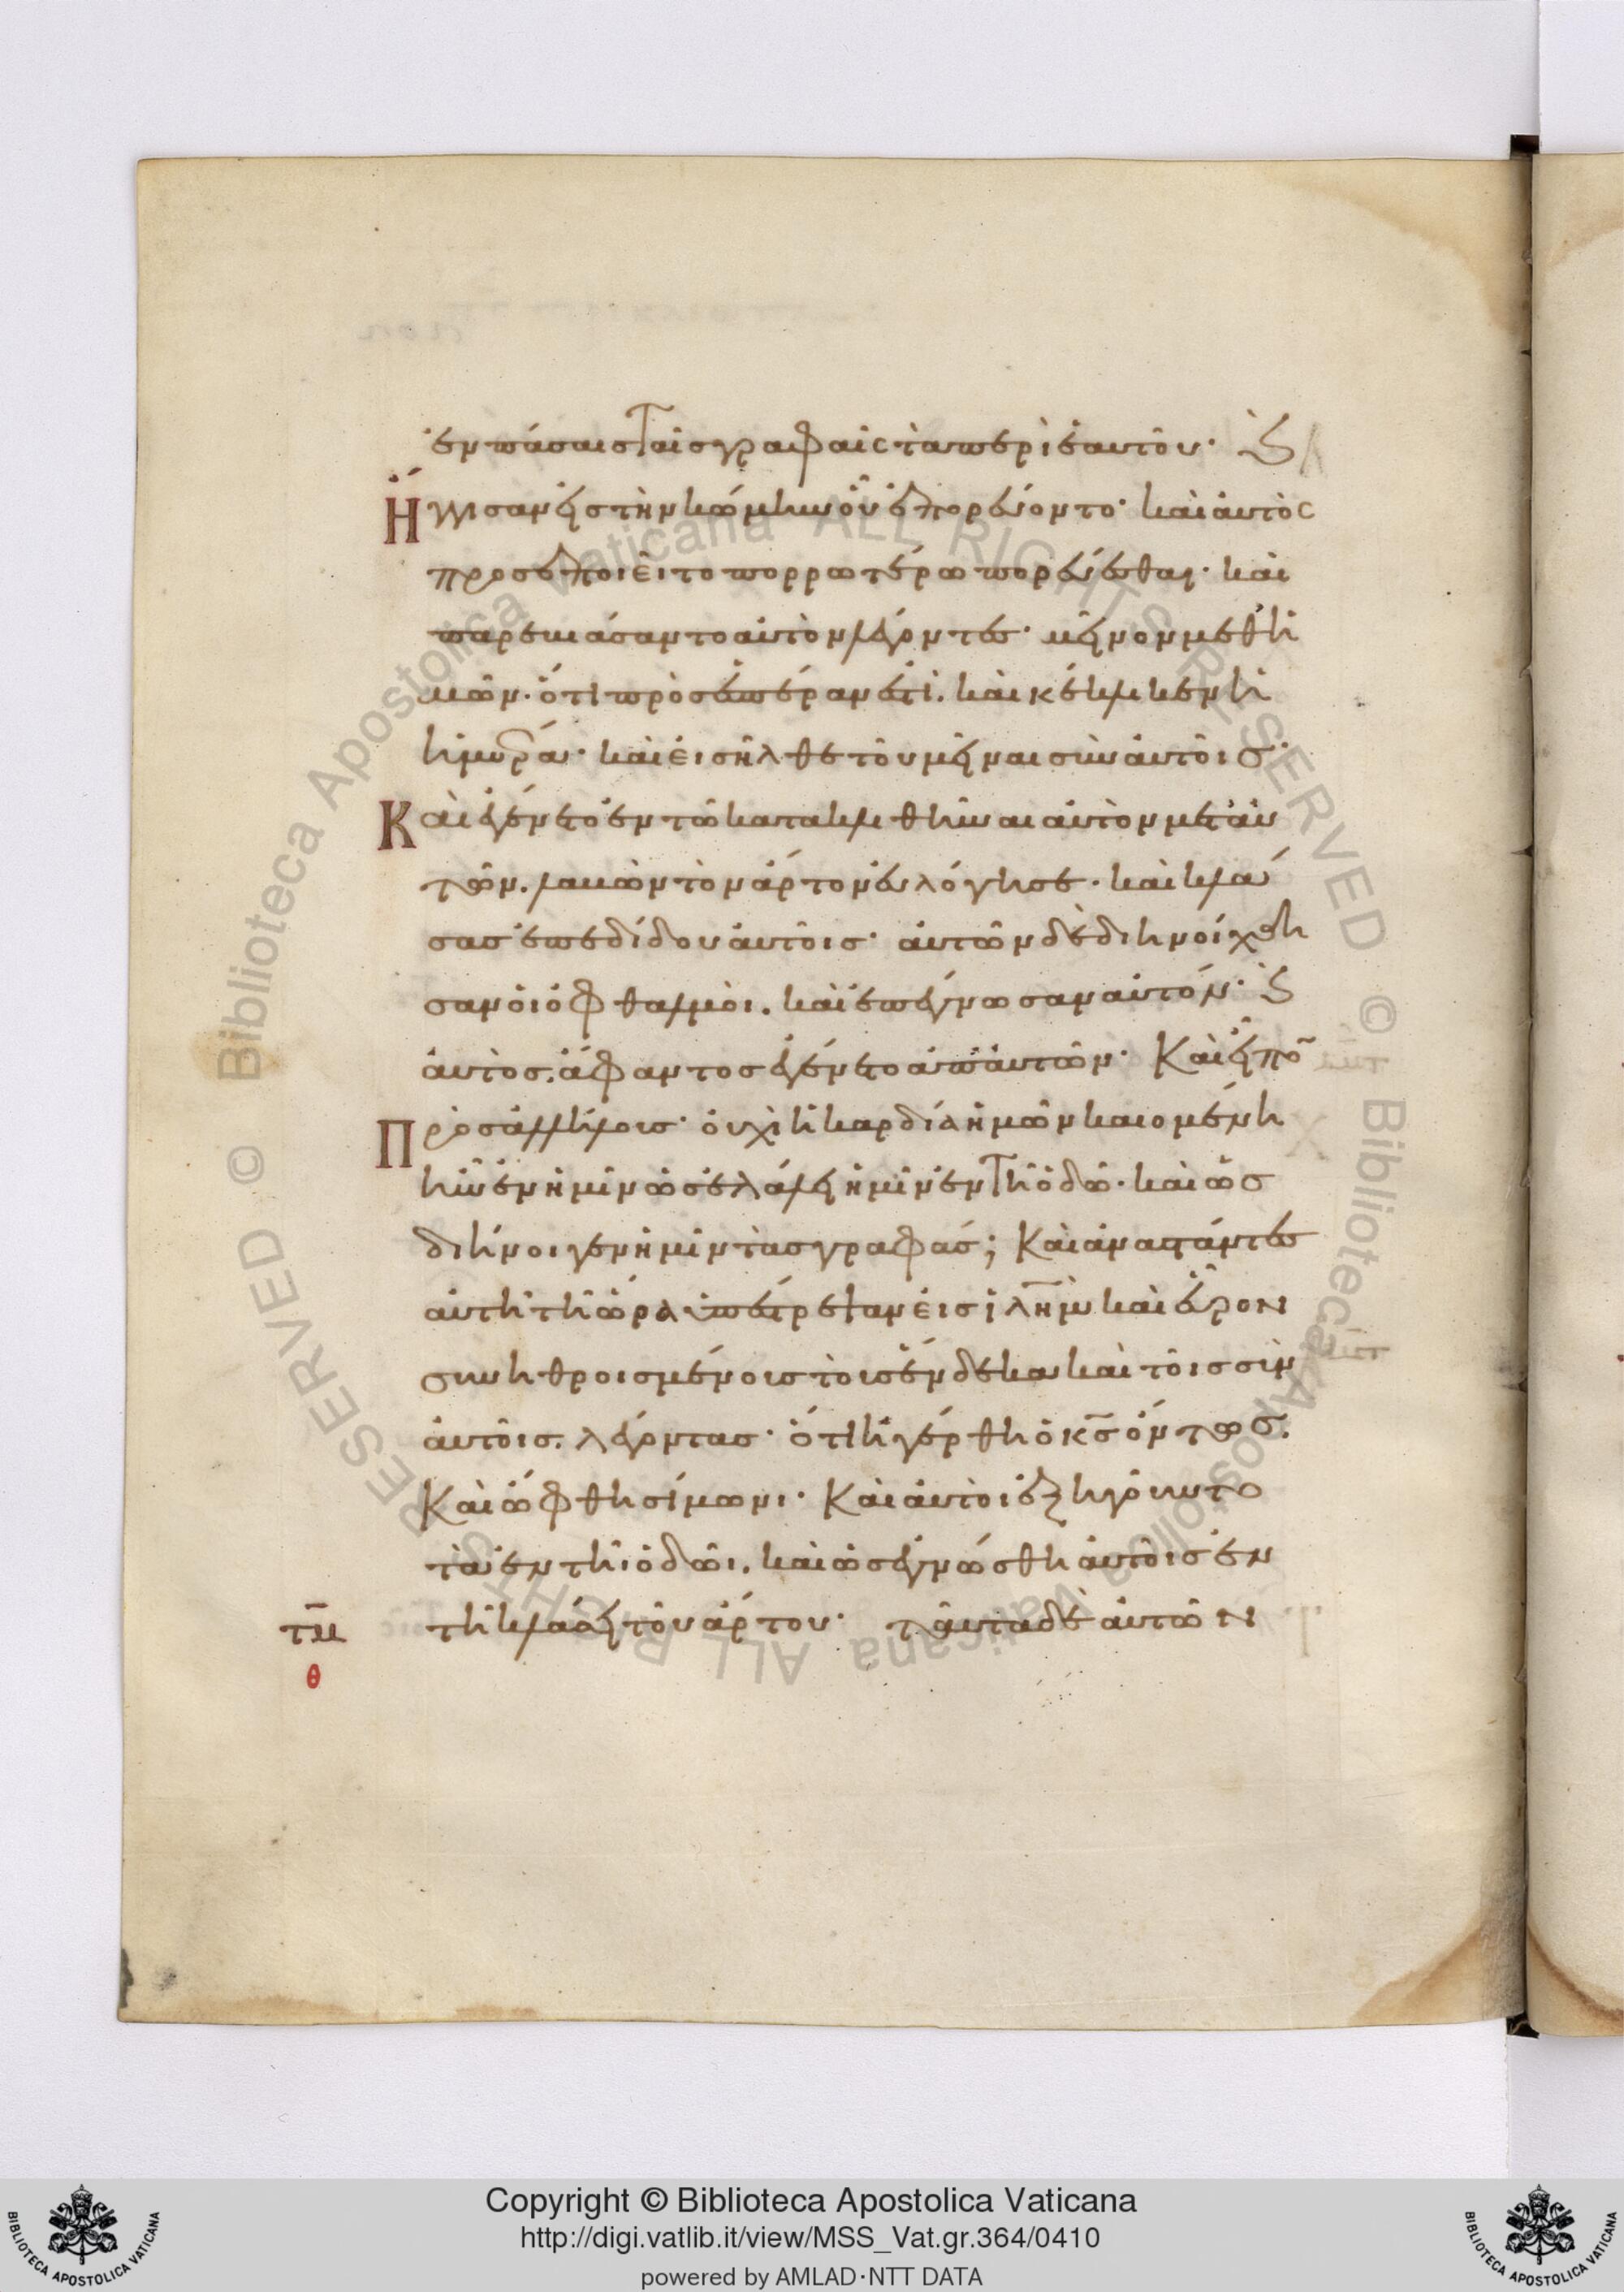 ἐν πάσαις ταῖς γραφαῖς τὰ περὶ ἑαυτοῦ· Καὶ
Ἤγγισαν εἰς τὴν κώμην οὗ ἐπορεύοντο· καὶ αὐτὸς
προσεποιεῖτο πορρωτέρω πορεύεσθαι· καὶ
παρεβιάσαντο αὐτὸν λέγοντες· μεῖνον μεθ' ἡ
μῶν· ὅτι πρὸς ἑσπέραν ἐστὶ. καὶ κέκλικεν ἡ
ἡμέρα· καὶ εἰσῆλθε τοῦ μεῖναι σὺν αὐτοῖς·
Καὶ ἐγένετο ἐν τῶ κατακλιθῆναι αὐτὸν μετ' αὐ
τῶν. λαβὼν τὸν ἄρτον εὐλόγησε· καὶ κλά
σας ἐπεδίδου αὐτοῖς· αὐτῶν δὲ διηνοίχθη
σαν οἱ ὀφθαλμοὶ. καὶ ἐπέγνωσαν αὐτόν· Καὶ
αὐτὸς. ἄφαντος ἐγένετο ἀπ' αὐτῶν· Καὶ εἶπον
Πρὸς ἀλλήλους· οὐχὶ ἡ καρδία ἡμῶν καιομένη
ἦν ἐν ἡμῖν ὡς ἐλάλει ἡμῖν ἐν τῆ ὁδῶ· καὶ ὡς
διήνοιγεν ἡμῖν τὰς γραφάς; Καὶ ἀναστάντες
αὐτῆ τῆ ὥρα ὑπέστρεψαν εἰς ἰλη̅μ καὶ εὗρον
συνηθροισμένους τοὺς ἕνδεκα καὶ τοὺς σὺν
αὐτοῖς. λέγοντας· ὅτι ἠγέρθη ὁ κ̅ς ὄντως.
Καὶ ὤφθη σίμωνι· Καὶ αὐτοὶ ἐξηγοῦντο
τὰ ἐν τῆι ὁδῶι. καὶ ὡς ἐγνώσθη αὐτοῖς ἐν
τῆ κλάσει τοῦ ἄρτου· ταῦτα δὲ αὐτῶν
τ̅μ
θ
Copyright © Biblioteca Apostolica Vaticana
http://digi.vatlib.it/view/MSS_Vat.gr.364/0410
powered by AMLAD·NTT DATA
BIBLIOTECA APOSTOLICA VATICANA
BIBLIOTECA APOSTOLICA VATICANA
© Biblioteca Apostolica Vaticana ALL RIGHTS RESERVED
© Biblioteca Apostolica Vaticana ALL RIGHTS RESERVED